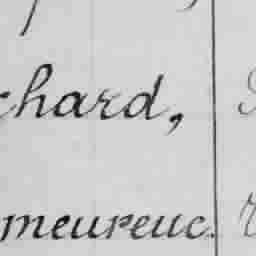 chard,
meureuc.